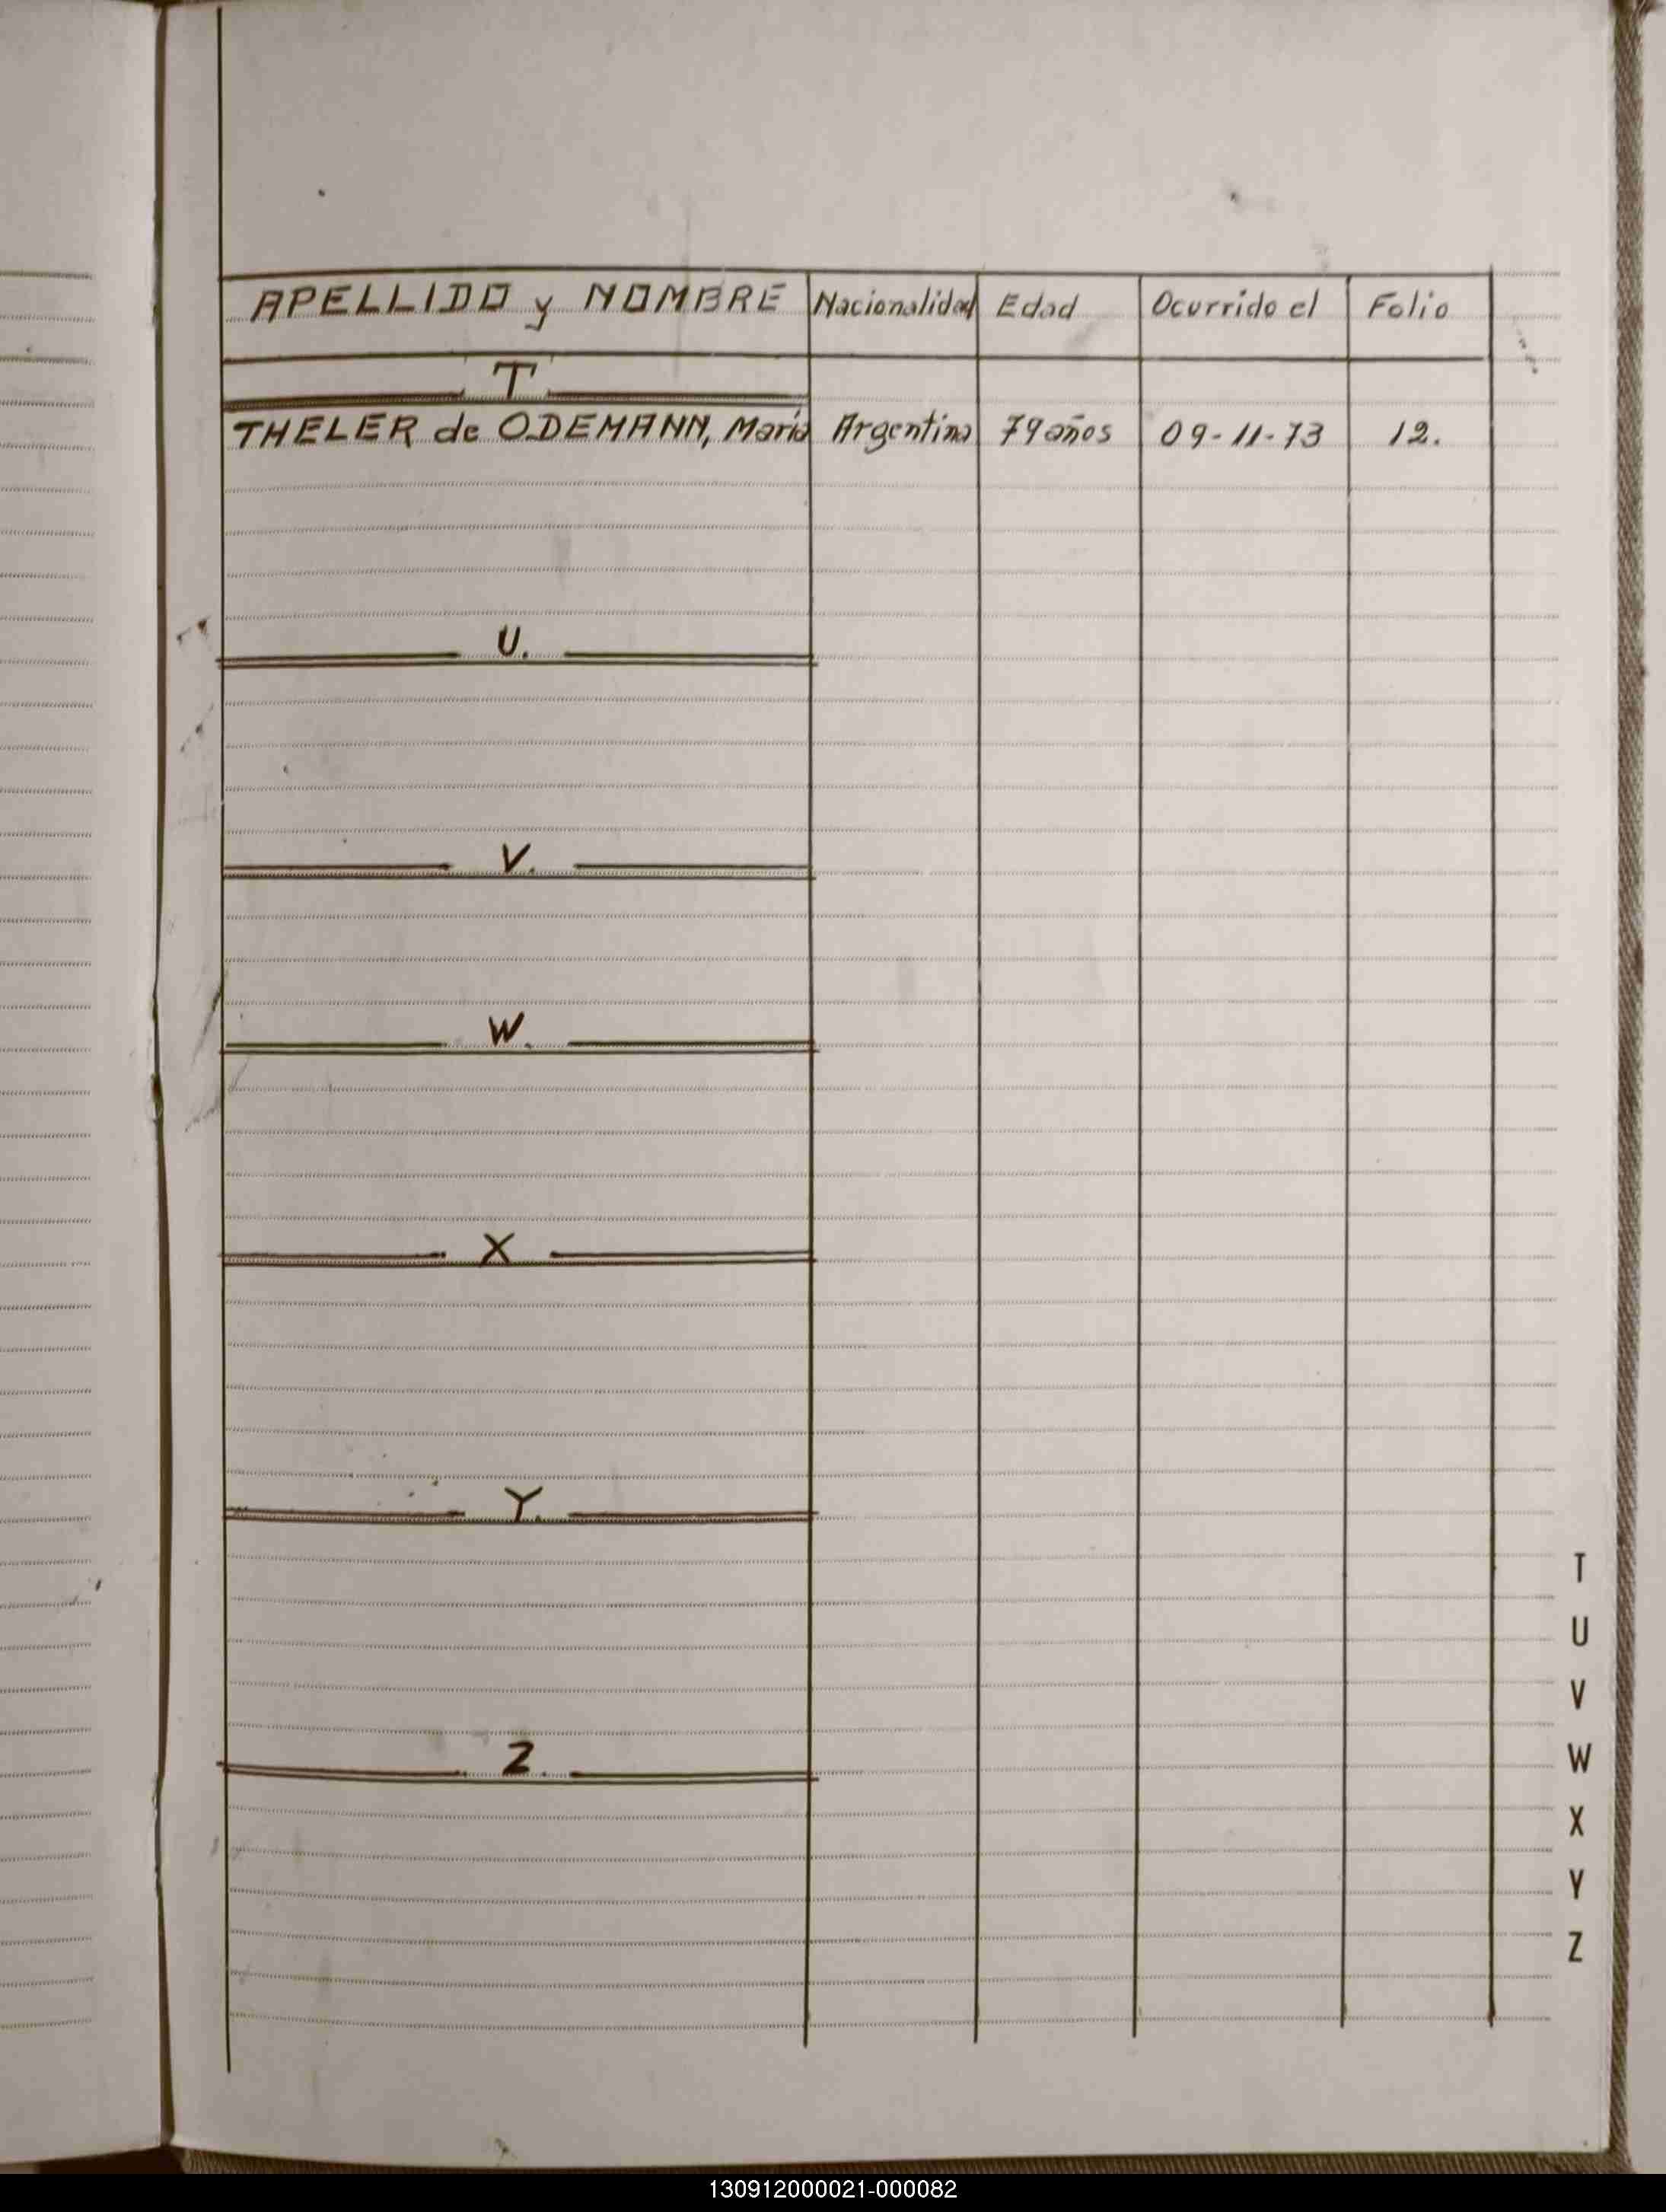 APELLIDO y NOMBRE Nacionalidad Edad Ocurrido el Folio
T
THELER de ODEMANN, María Argentina 79 años 09-11-73 12.
U.
V.
W.
X
Y.
Z.
T
U
V
W
X
Y
Z
130912000021-000082